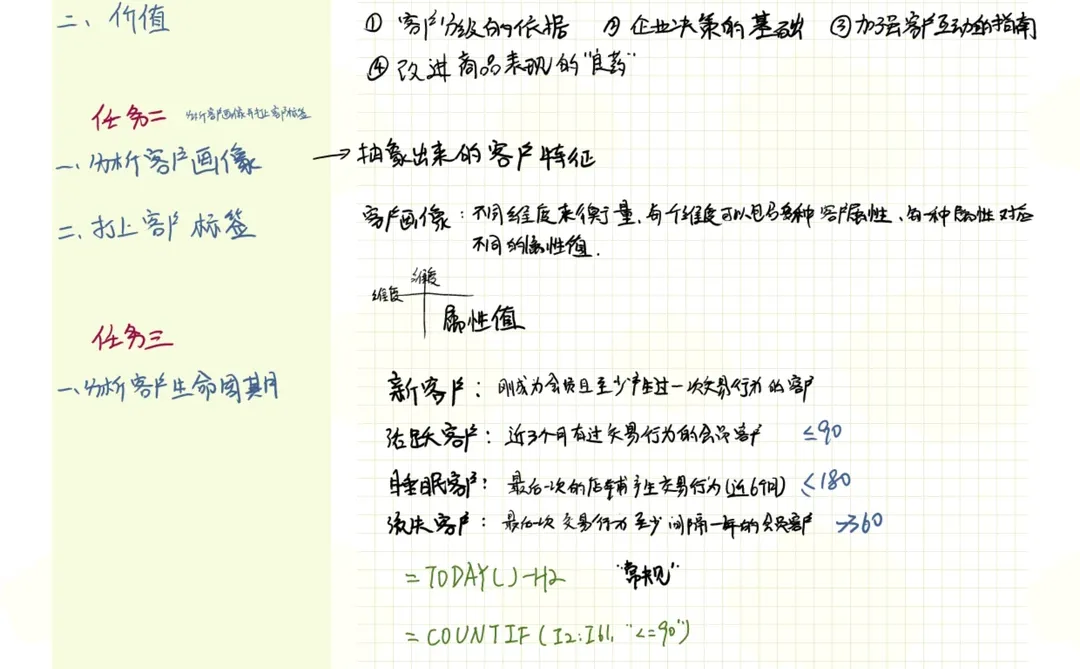 二、价值
① 客户分级的依据 ② 企业决策的基础 ③ 加强客户互动的指南
④ 改进商品表现的"良药"
任务二 分析客户画像并打上客户标签
一、分析客户画像 → 抽象出来的客户特征
二、打上客户标签
客户画像：不同维度来衡量，每个维度可以包含多种客户属性，每一种属性对应
不同的属性值.
维度
维度
属性值
任务三
一、分析客户生命周期
新客户：刚成为会员且至少产生过一次交易行为的客户
活跃客户：近3个月有过交易行为的会员客户 ≤90
睡眠客户：最后一次的店铺产生交易行为(近6个月) ≤180
流失客户：最后一次交易行为至少间隔一年的会员客户 >360
=TODAY()-H2 "常规"
=COUNTIF(I2:I61,"<=90")